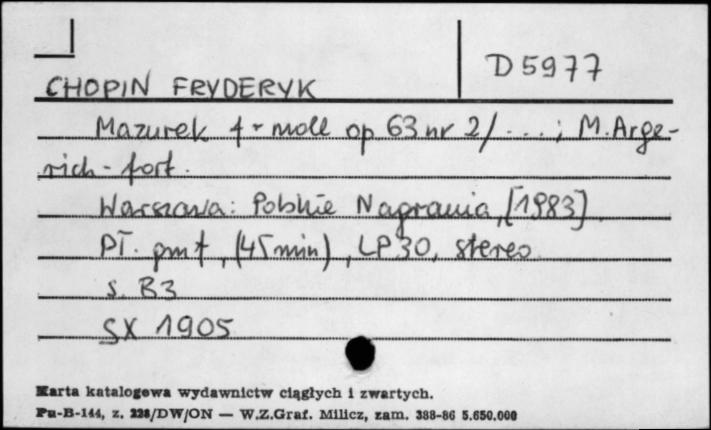 D 5977
CHOPIN FRYDERYK
Mazurek f-moll op 63 nr 2/ ...; M. Arge-
rich - fort.
Warszawa: Polskie Nagrania, [1983]
Pł. gmf, (45 min), LP 30, stereo.
s. B3
SX 1905
Karta katalogowa wydawnictw ciągłych i zwartych.
Pu-B-144, z. 228/DW/ON — W.Z.Graf. Milicz, zam. 388-86 5.650.000